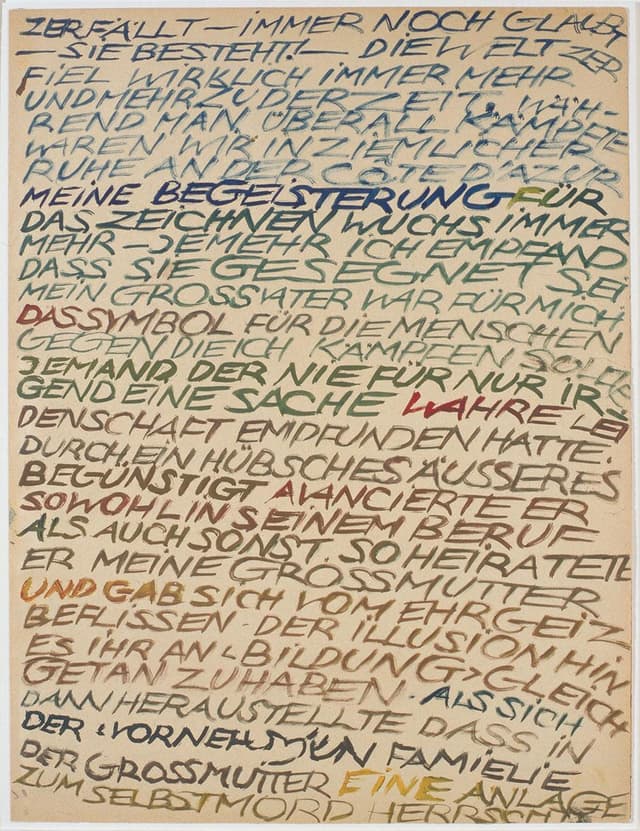 ZERFÄLLT – IMMER NOCH GLAUBT
– SIE BESTEHT! – DIE WELT ZER
FIEL WIRKLICH IMMER MEHR
UND MEHR ZU DER ZEIT, WÄH-
REND MAN ÜBERALL KÄMPFTE
WAREN WIR IN ZIEMLICHER
RUHE AN DER COTE D'AZUR
MEINE BEGEISTERUNG FÜR
DAS ZEICHNEN WUCHS IMMER
MEHR – JEMEHR ICH EMPFAND
DASS SIE GESEGNET SEI
MEIN GROSSVATER WAR FÜR MICH
DAS SYMBOL FÜR DIE MENSCHEN
GEGEN DIE ICH KÄMPFEN SOLLTE
JEMAND DER NIE FÜR NUR IR-
GEND EINE SACHE WAHRE LEI
DENSCHAFT EMPFUNDEN HATTE.
DURCH EIN HÜBSCHES ÄUSSERES
BEGÜNSTIGT AVANCIERTE ER
SOWOHL IN SEINEM BERUF
ALS AUCH SONST. SO HEIRATETE
ER MEINE GROSSMUTTER
UND GAB SICH VOM EHRGEIZ
BEFLISSEN DER ILLUSION HIN
ES IHR AN ‹BILDUNG› GLEICH
GETAN ZU HABEN. ALS SICH
DANN HERAUSTELLTE DASS IN
DER FAMIELIE
DER GROSSMUTTER EINE ANLAGE
ZUM SELBSTMORD HERRSCHTE